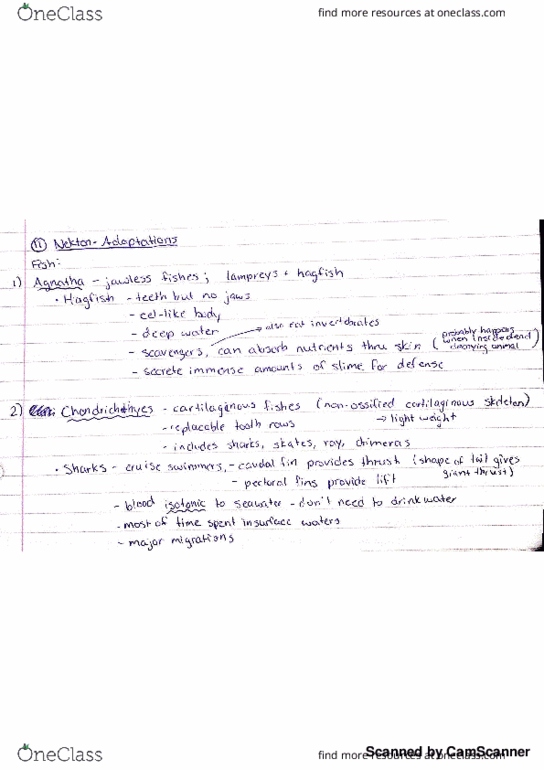 OneClass
find more resources at oneclass.com
11 Nekton-Adaptations
Fish:
1) Agnatha - jawless fishes; lampreys + hagfish
• Hagfish - teeth but no jaws
- eel-like body
- deep water → also eat invertebrates
- scavengers, can absorb nutrients thru skin (probably happens when inside dead decaying animal)
- secrete immense amounts of slime for defense
2) Chondrichthyes - cartilaginous fishes (non-ossified cartilaginous skeleton)
- replaceable tooth rows → light weight
- includes sharks, skates, ray, chimeras
• Sharks - cruise swimmers, - caudal fin provides thrust (shape of tail gives giant thrust)
- pectoral fins provide lift
- blood isotonic to seawater - don't need to drink water
- most of time spent in surface waters
- major migrations
OneClass
find more resources at oneclass.com
Scanned by CamScanner